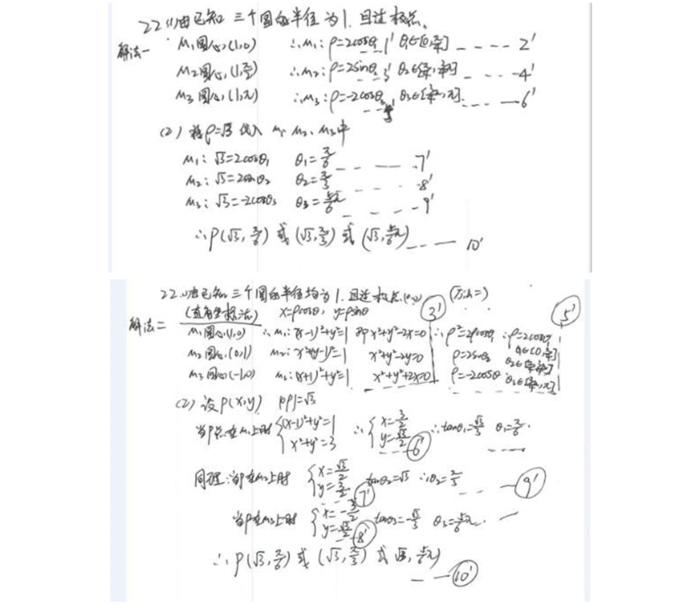 22.(1)由已知 三个圆的半径为1.且过极点.
解法一 M₁圆心(1,0) ∴M₁:ρ=2cosθ₁ θ₁∈[0,π/4] ---- 2'
M₂圆心(1,π/2) ∴M₂:ρ=2sinθ₂ θ₂∈[π/4,3π/4] ---- 4'
M₃圆心(1,π) ∴M₃:ρ=-2cosθ₃ θ₃∈[3π/4,π] ---- 6'
(2) 将ρ=√3 代入 M₁、M₂、M₃中
M₁:√3=2cosθ₁ θ₁=π/6 ---- 7'
M₂:√3=2sinθ₂ θ₂=π/3 ---- 8'
M₃:√3=-2cosθ₃ θ₃=5π/6 ---- 9'
∴P(√3,π/6) 或 (√3,π/3) 或 (√3,5π/6) ---- 10'
22.(1)由已知 三个圆的半径均为1.且过极点(0,0) (方法二)
解法二 (直角坐标法) x=ρcosθ, y=ρsinθ 3' 5'
M₁圆心(1,0) ∴M₁:(x-1)²+y²=1 即x²+y²-2x=0 ∴ρ²=2ρcosθ ∴ρ=2cosθ₁ θ₁∈[0,π/4]
M₂圆心(0,1) M₂:x²+(y-1)²=1 x²+y²-2y=0 ρ=2sinθ₂ θ₂∈[π/4,3π/4]
M₃圆心(-1,0) M₃:(x+1)²+y²=1 x²+y²+2x=0 ρ=-2cosθ θ₃∈[3π/4,π]
(2) 设P(x,y) |OP|=√3
当P点在M₁上时 {(x-1)²+y²=1 x²+y²=3 ∴{x=3/2 y=√3/2 6' ∴tanθ₁=√3/3 θ₁=π/6.
同理:当P在M₂上时 {x=√3/2 y=3/2 7' tanθ₂=√3 ∴θ₂=π/3 ---- 9'
当P在M₃上时 {x=-3/2 y=√3/2 8' tanθ₃=-√3/3 θ₃=5π/6.
∴P(√3,π/6) 或 (√3,π/3) 或 (√3,5π/6) ---- 10'